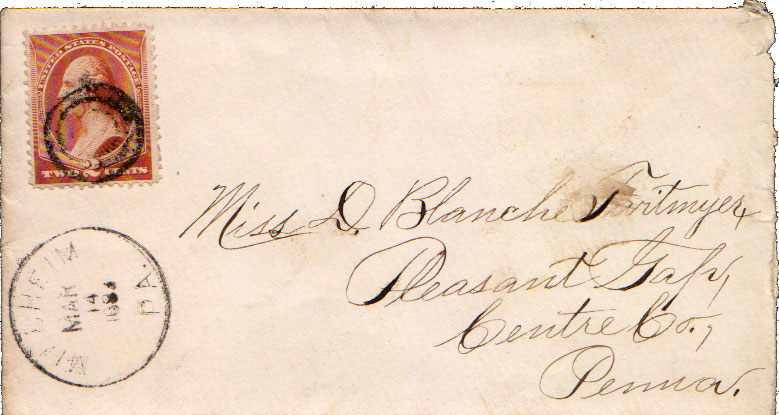 UNITED STATES POSTAGE
TWO 2 CENTS
Miss D. Blanche Twitmyer,
Pleasant Gap,
Centre Co.,
Penna.
MAR
14
PA